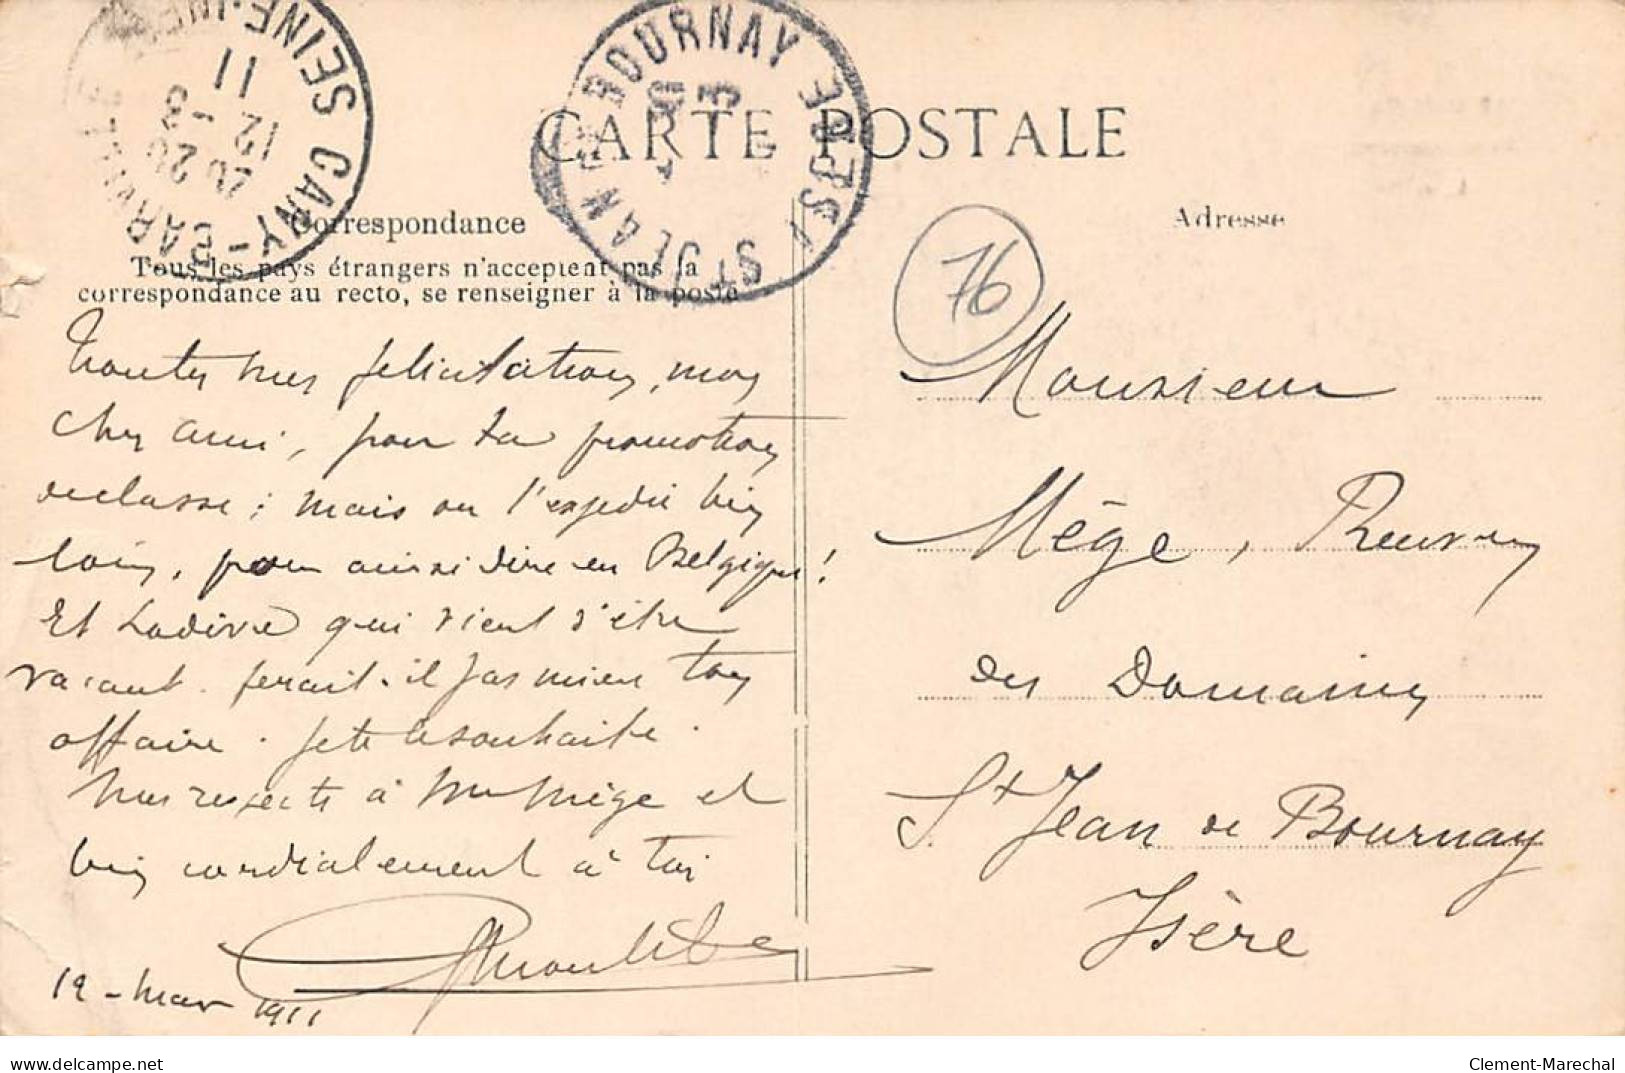 SEINE-INF CANY-BARVILLE
11
12
20 8
ST JEAN DE BOURNAY ISERE
CARTE POSTALE
Correspondance
Adresse
Tous les pays étrangers n'acceptent pas la
correspondance au recto, se renseigner à la poste
76
Toutes mes félicitations, mon
cher ami, pour ta promotion
de classe ; mais on t'expédie bien
loin, pour ainsi dire en Belgique !
Et qui vient d'être
vacant. ferait-il pas mieux ton
affaire. Je te le souhaite.
Mes respects à Mme Mège et
bien cordialement à toi
12 - Mars 1911
Monsieur
Mège, Receveur
des Domaines
St Jean de Bournay
Isère
delcampe.net
Clement-Marechal